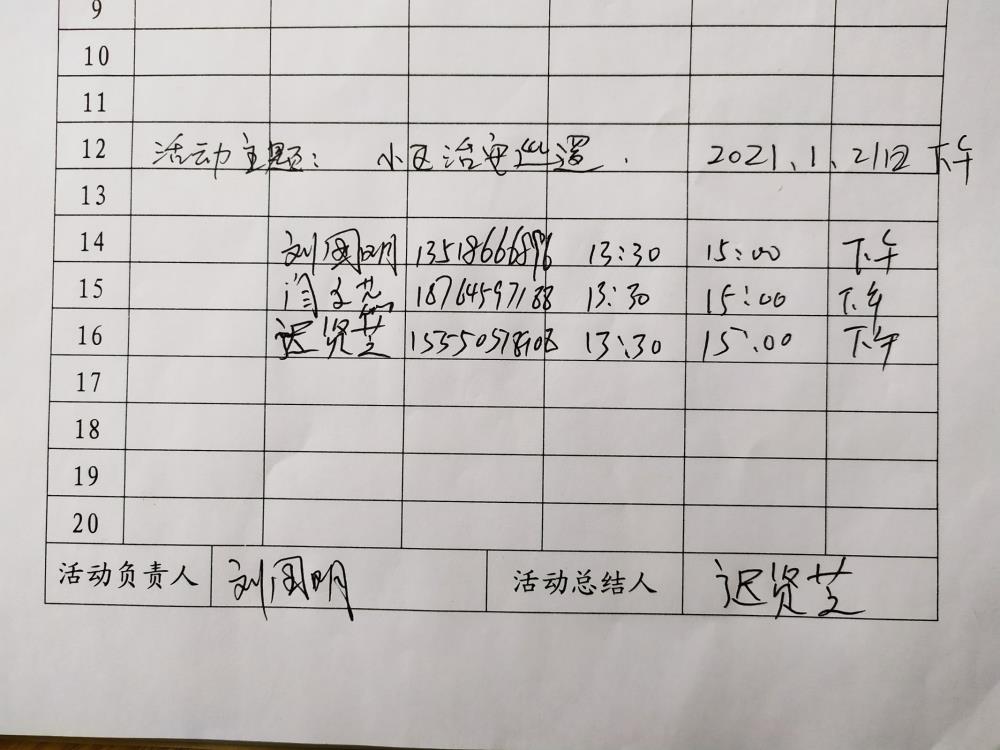 9
10
11
12 活动主题: 小区治安巡逻. 2021.1.21日 下午
13
14 刘国明 13:30 15:00 下午
15 闫 13:30 15:00 下午
16 迟贤芝 13:30 15:00 下午
17
18
19
20
活动负责人 刘国明 活动总结人 迟贤芝